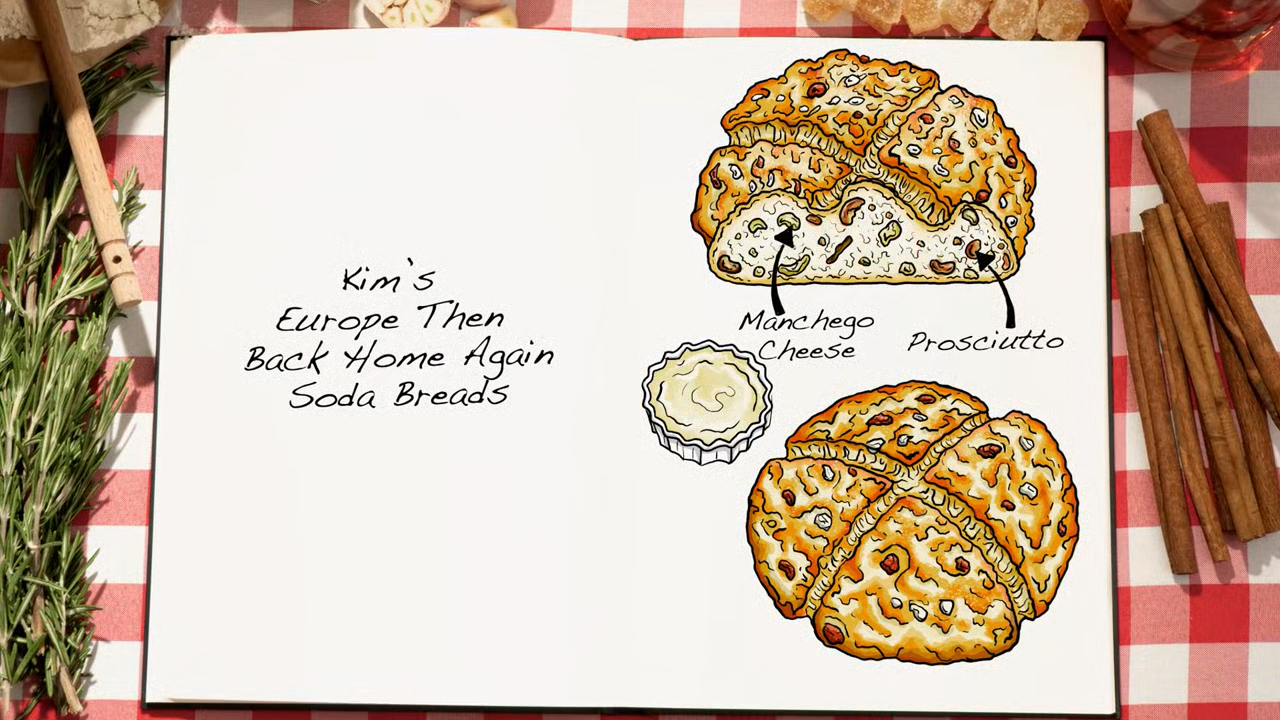 Kim's
Europe Then
Back Home Again
Soda Breads
Manchego
Cheese
Prosciutto